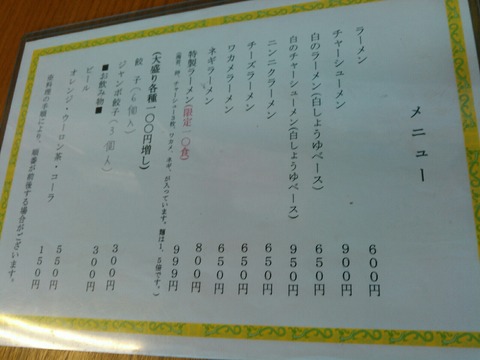 メニュー
ラーメン 600円
チャーシューメン 900円
白のラーメン(白しょうゆベース) 650円
白のチャーシューメン(白しょうゆベース) 950円
ニンニクラーメン 650円
チーズラーメン 650円
ワカメラーメン 650円
ネギラーメン 800円
特製ラーメン(限定一〇食) 999円
卵、チャーシュー3枚、ワカメ、ネギ、が入っています。麺は1.5倍です。)
(大盛り各種一〇〇円増し)
餃子(6個入) 300円
ジャンボ餃子(3個入) 300円
■お飲み物■
ビール 550円
オレンジ・ウーロン茶・コーラ 150円
※料理の手順により、順番が前後する場合がございます。